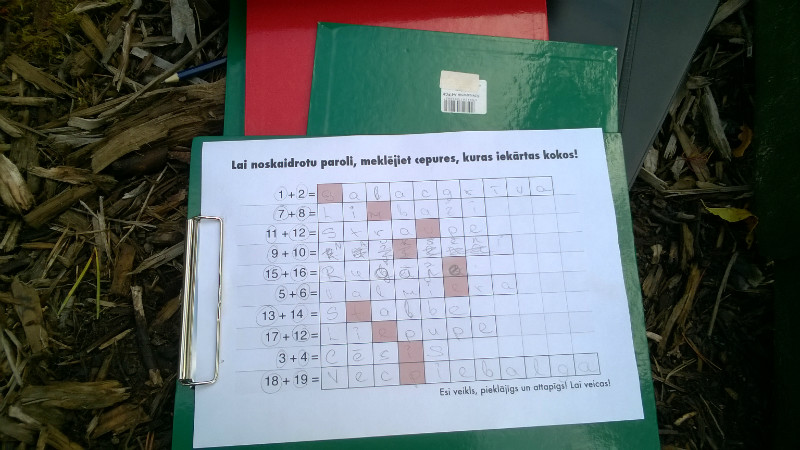 Lai noskaidrotu paroli, meklējiet cepures, kuras iekārtas kokos!
1 + 2 = Salacgrīva
7 + 8 = Limbaži
11 + 12 = Straupe
9 + 10 =
15 + 16 =
5 + 6 = Valmiera
13 + 14 = Stalbe
17 + 12 = Liepupe
3 + 4 = Cēsis
18 + 19 = Vecpiebalga
Esi veikls, pieklājīgs un attapīgs! Lai veicas!